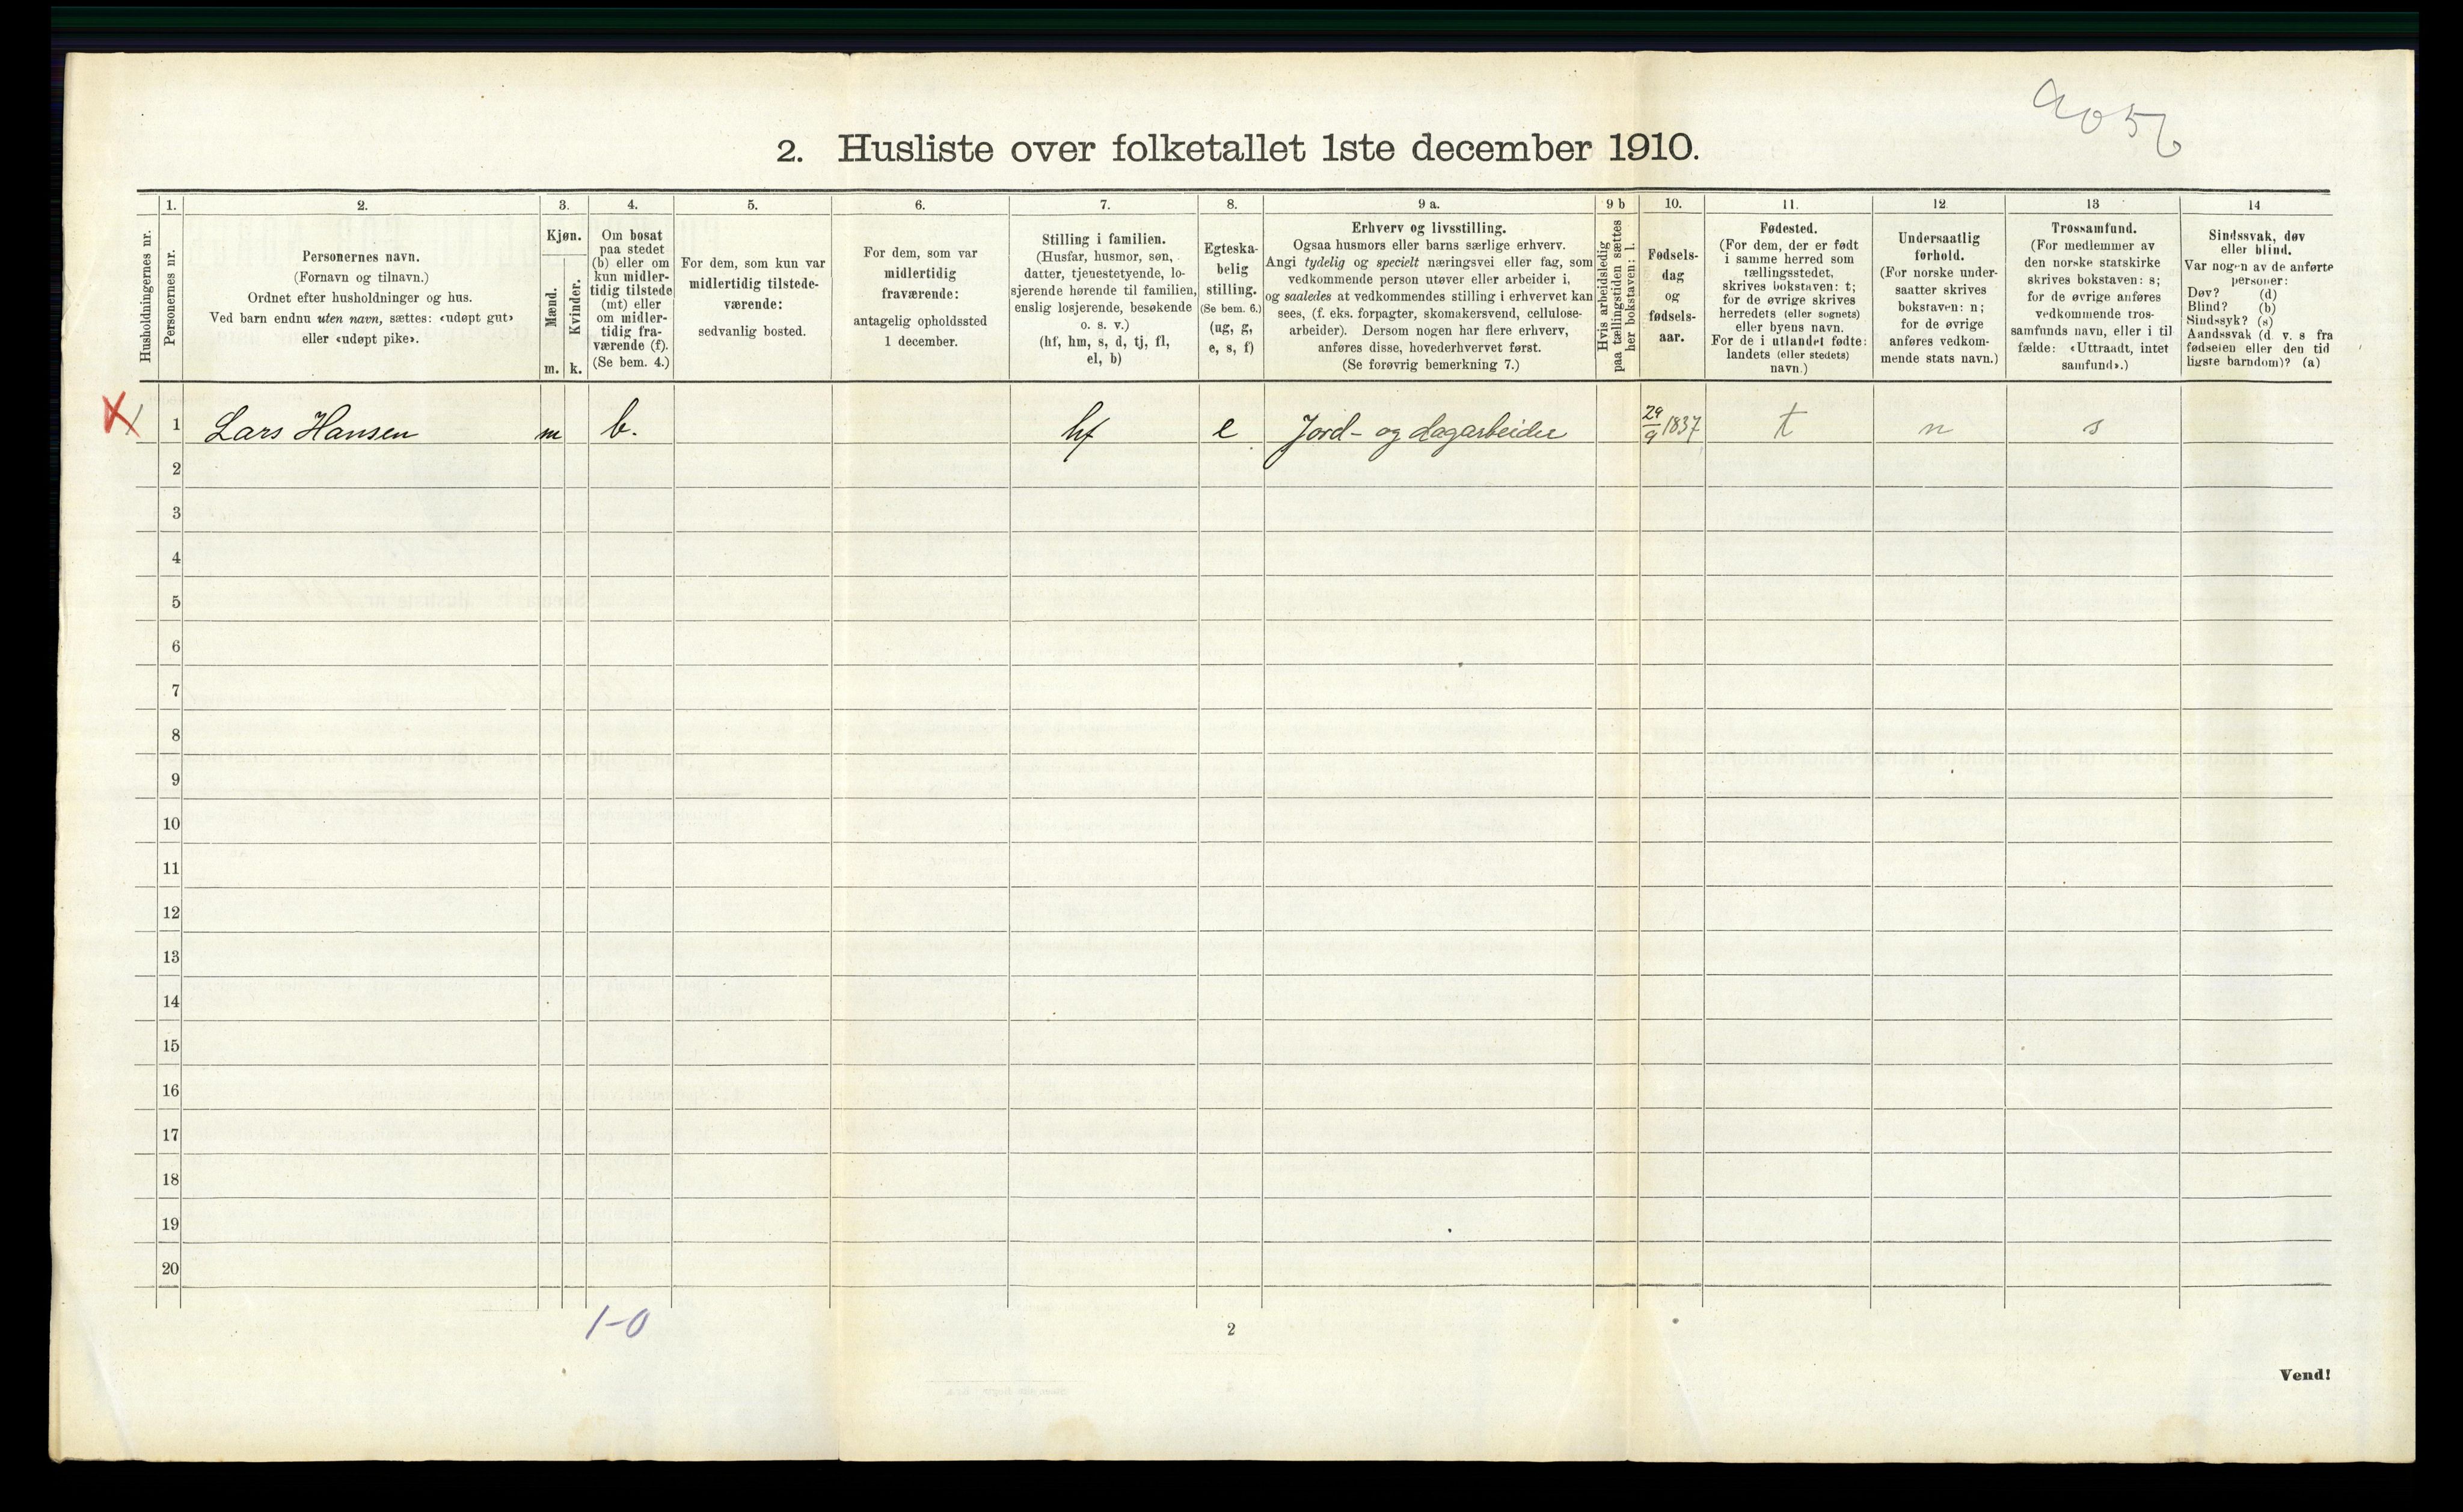 9056
2. Husliste over folketallet 1ste december 1910.
Husholdningernes nr.
1.
Personernes nr.
2.
Personernes navn.
(Fornavn og tilnavn.)
Ordnet efter husholdninger og hus.
Ved barn endnu uten navn, sættes: «udøpt gut»
eller «udøpt pike».
3.
Kjøn.
Mænd.
Kvinder.
m. k.
4.
Om bosat
paa stedet
(b) eller om
kun midler-
tidig tilstede
(mt) eller
om midler-
tidig fra-
værende (f).
(Se bem. 4.)
5.
For dem, som kun var
midlertidig tilstede-
værende:
sedvanlig bosted.
6.
For dem, som var
midlertidig
fraværende:
antagelig opholdssted
1 december.
7.
Stilling i familien.
(Husfar, husmor, søn,
datter, tjenestetyende, lo-
sjerende hørende til familien,
enslig losjerende, besøkende
o. s. v.)
(hf, hm, s, d, tj, fl,
el, b)
8.
Egteska-
belig
stilling.
(Se bem. 6.)
(ug, g,
e, s, f)
9 a.
Erhverv og livsstilling.
Ogsaa husmors eller barns særlige erhverv.
Angi tydelig og specielt næringsvei eller fag, som
vedkommende person utøver eller arbeider i,
og saaledes at vedkommendes stilling i erhvervet kan
sees, (f. eks. forpagter, skomakersvend, cellulose-
arbeider). Dersom nogen har flere erhverv,
anføres disse, hovederhvervet først.
(Se forøvrig bemerkning 7.)
9 b
Hvis arbeidsledig
paa tællingstiden sættes
her bokstaven: l.
10.
Fødsels-
dag
og
fødsels-
aar.
11.
Fødested.
(For dem, der er født
i samme herred som
tællingsstedet,
skrives bokstaven: t;
for de øvrige skrives
herredets (eller sognets)
eller byens navn.
For de i utlandet fødte:
landets (eller stedets)
navn.)
12.
Undersaatlig
forhold.
(For norske under-
saatter skrives
bokstaven: n;
for de øvrige
anføres vedkom-
mende stats navn.)
13
Trossamfund.
(For medlemmer av
den norske statskirke
skrives bokstaven: s;
for de øvrige anføres
vedkommende tros-
samfunds navn, eller i til
fælde: «Uttraadt, intet
samfund».)
14
Sindssvak, døv
eller blind.
Var nogen av de anførte
personer:
Døv? (d)
Blind? (b)
Sindssyk? (s)
Aandssvak (d. v. s fra
fødselen eller den tid
ligste barndom)? (a)
X 1 1 Lars Hansen m b. hf e Jord- og dagarbeider 29/9 1837 t n s
2
3
4
5
6
7
8
9
10
11
12
13
14
15
16
17
18
19
20
1-0
2
Vend!